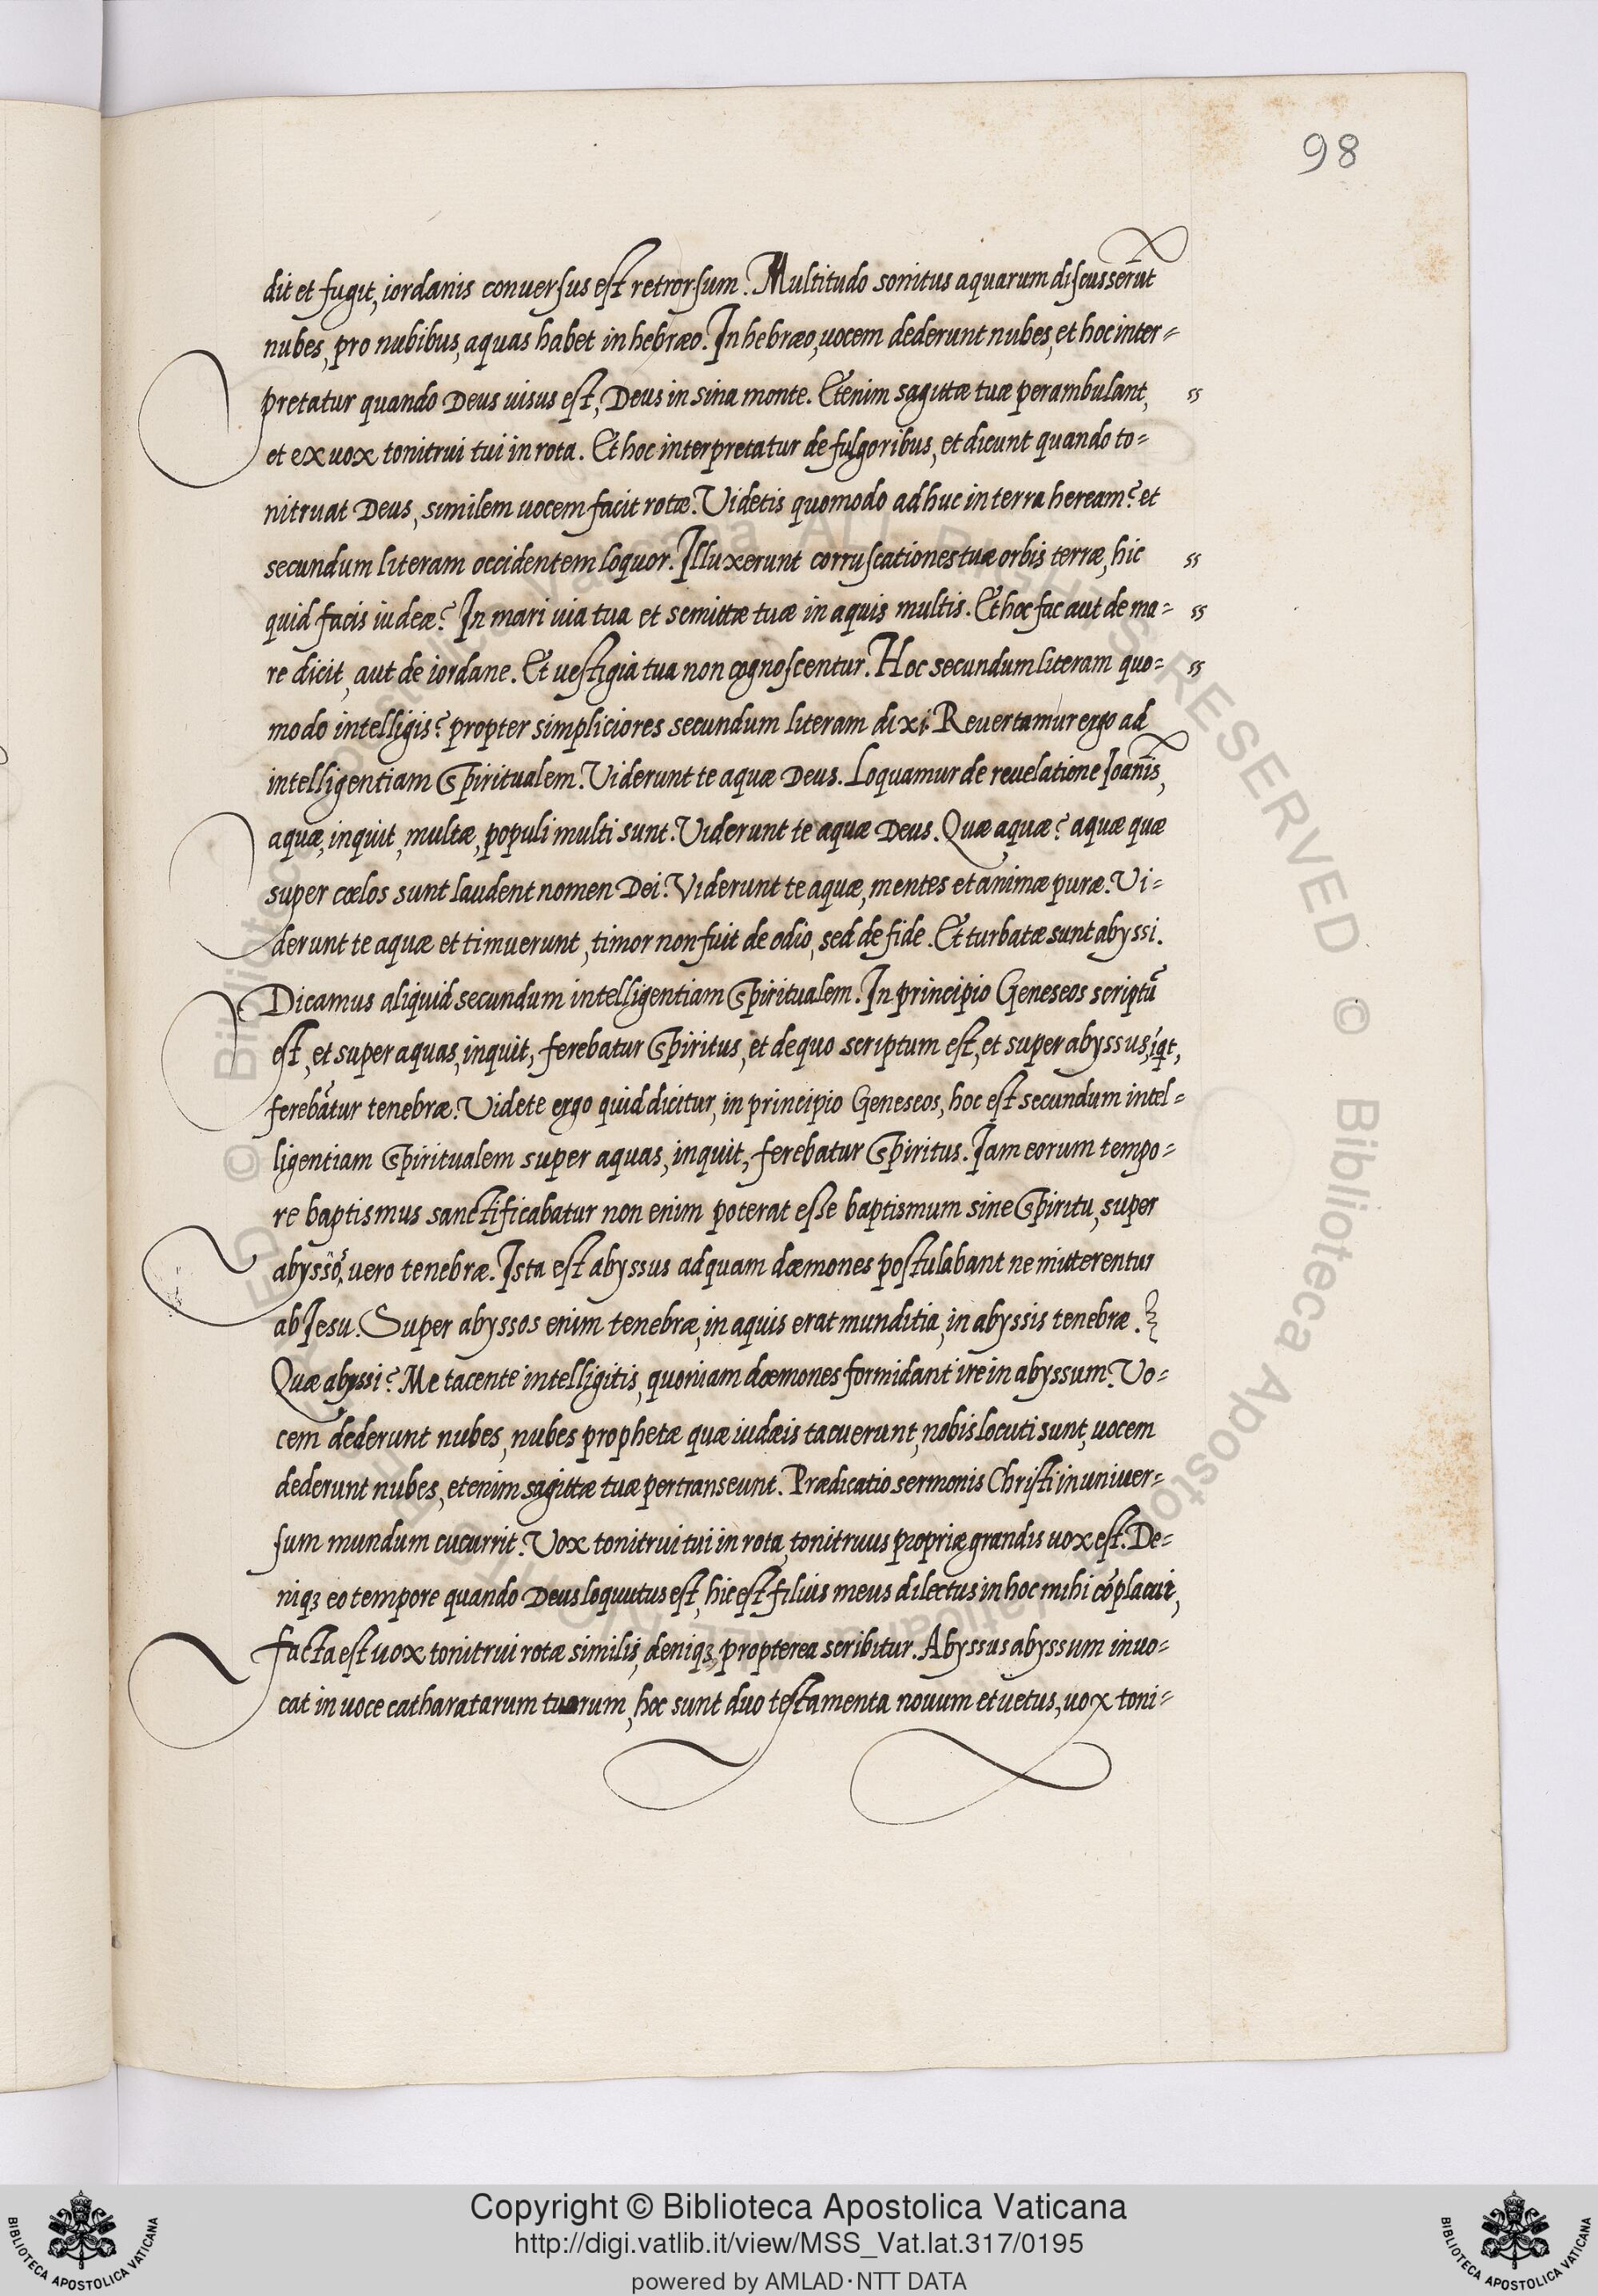 98
dit et fugit, iordanis conuersus est retrorsum. Multitudo sonitus aquarum discusserūt
nubes, pro nubibus, aquas habet in hebræo. In hebræo, uocem dederunt nubes, et hoc inter=
pretatur quando Deus uisus est, Deus in sina monte. Etenim sagittæ tuæ perambulant,
et ex uox tonitrui tui in rota. Et hoc interpretatur de fulgoribus, et dicunt quando to=
nitruat Deus, similem uocem facit rotæ. Videtis quomodo adhuc in terra heream? et
secundum literam occidentem loquor. Illuxerunt corruscationes tuæ orbis terræ, hic
quid facis iudeæ? In mari uia tua et semittæ tuæ in aquis multis. Et hoc fac aut de ma=
re dicit, aut de iordane. Et uestigia tua non cognoscentur. Hoc secundum literam quo=
modo intelligis? propter simpliciores secundum literam dixi. Reuertamur ergo ad
intelligentiam Spiritualem. Viderunt te aquæ Deus. Loquamur de reuelatione Ioānis,
aquæ, inquit, multæ, populi multi sunt. Viderunt te aquæ Deus. Quæ aquæ? aquæ quæ
super cœlos sunt laudent nomen Dei. Viderunt te aquæ, mentes et animæ puræ. Vi=
derunt te aquæ et timuerunt, timor non fuit de odio, sed de fide. Et turbatæ sunt abyssi.
Dicamus aliquid secundum intelligentiam Spiritualem. In principio Geneseos scriptū
est, et super aquas, inquit, ferebatur Spiritus, et de quo scriptum est, et super abyssus, īqt,
ferebātur tenebræ. Videte ergo quid dicitur, in principio Geneseos, hoc est secundum intel=
ligentiam Spiritualem super aquas, inquit, ferebatur Spiritus. Iam eorum tempo=
re baptismus sanctificabatur non enim poterat esse baptismum sine Spiritu, super
abysso, uero tenebræ. Ista est abyssus ad quam dæmones postulabant ne mitterentur
ab Iesu. Super abyssos enim tenebræ, in aquis erat munditia, in abyssis tenebræ.
Quæ abyssi? Me tacente intelligitis, quoniam dæmones formidant ire in abyssum. Vo=
cem dederunt nubes, nubes prophetæ quæ iudæis tacuerunt, nobis locuti sunt, uocem
dederunt nubes, etenim sagittæ tuæ pertranseunt. Prædicatio sermonis Christi in uniuer=
sum mundum cucurrit. Vox tonitrui tui in rota, tonitruus propriæ grandis uox est. De=
niqꝫ eo tempore quando Deus loquutus est, hic est filius meus dilectus in hoc mihi cōplacui,
facta est uox tonitrui rotæ similis, deniqꝫ propterea scribitur. Abyssus abyssum inuo=
cat in uoce catharatarum tuarum, hoc sunt duo testamenta nouum et uetus, uox toni=
Copyright © Biblioteca Apostolica Vaticana
http://digi.vatlib.it/view/MSS_Vat.lat.317/0195
powered by AMLAD·NTT DATA